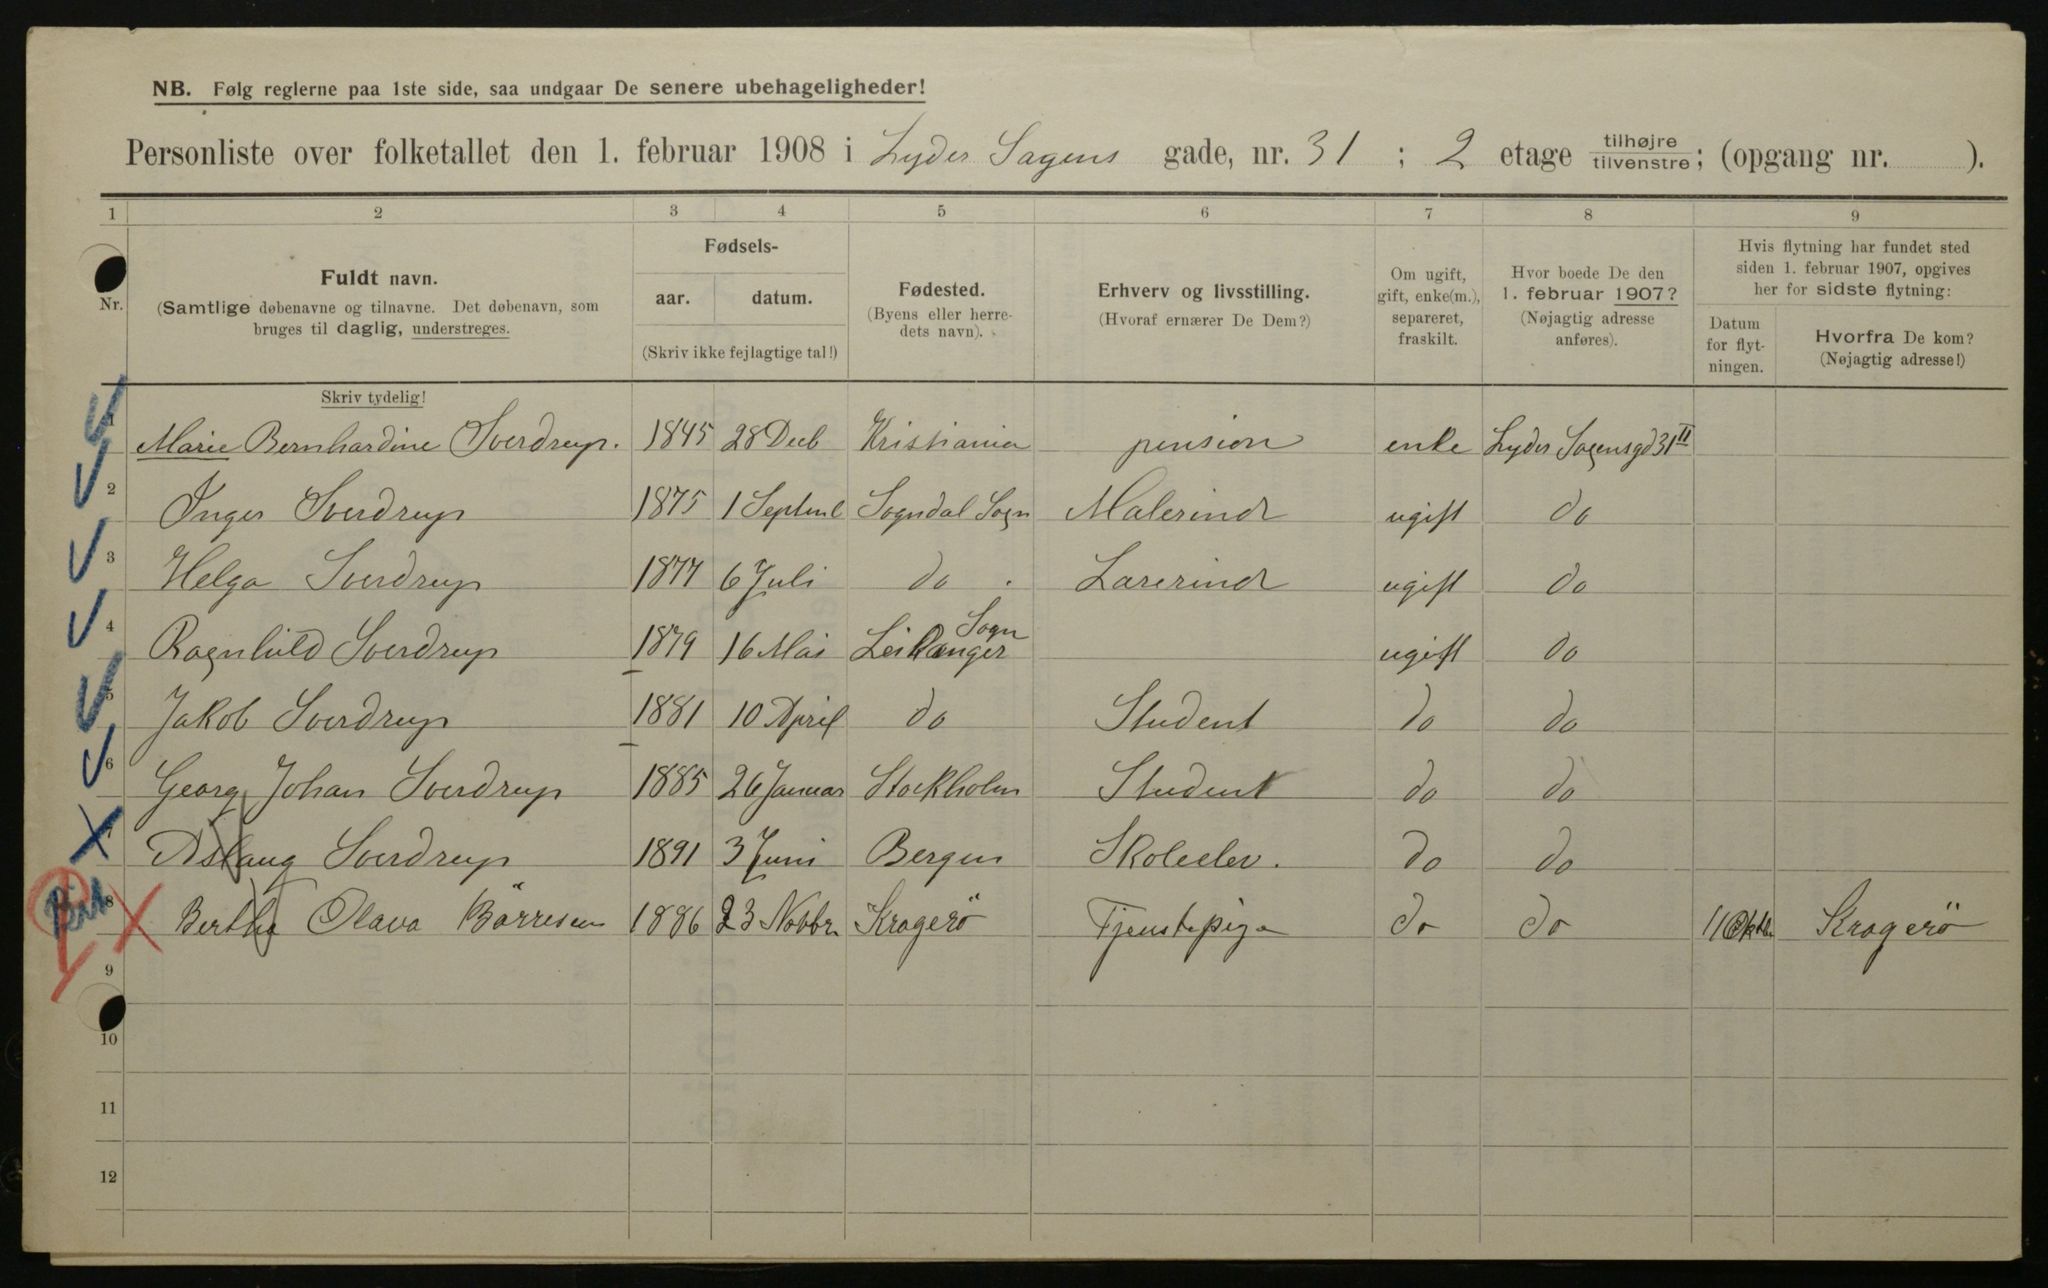 NB. Følg reglerne paa 1ste side, saa undgaar De senere ubehageligheder!
Personliste over folketallet den 1. februar 1908 i Lyder Sagens gade, nr. 31 ; 2 etage tilhøjre tilvenstre; (opgang nr. ).
1 2 3 4 5 6 7 8 9
Nr.
Fuldt navn.
(Samtlige døbenavne og tilnavne. Det døbenavn, som
bruges til daglig, understreges.
Skriv tydelig!
Fødsels-
aar. datum.
(Skriv ikke fejlagtige tal!)
Fødested.
(Byens eller herre-
dets navn).
Erhverv og livsstilling.
(Hvoraf ernærer De Dem?)
Om ugift,
gift, enke(m.),
separeret,
fraskilt.
Hvor boede De den
1. februar 1907?
(Nøjagtig adresse
anføres).
Hvis flytning har fundet sted
siden 1. februar 1907, opgives
her for sidste flytning:
Datum
for flyt-
ningen.
Hvorfra De kom?
(Nøjagtig adresse!)
1 Marie Bernhardine Sverdrup. 1845 28 Decb Kristiania pension enke Lyder Sagensgd 31 II
2 Inger Sverdrup 1875 1 Septmb Sogndal Sogn Malerinde ugift do
3 Helga Sverdrup 1877 6 Juli do . Lærerinde ugift do
4 Ragnhild Sverdrup 1879 16 Mai Leikanger Sogn ugift do
5 Jakob Sverdrup 1881 10 April do Student do do
6 Georg Johan Sverdrup 1885 26 Januar Stockholm Student do do
7 Aslaug Sverdrup 1891 3 Juni Bergen Skoleelev. do do
8 Bertha Olava Börresen 1886 23 Novbr Kragerö Tjenestepige do do 11 Oktbr Kragerö
9
10
11
12